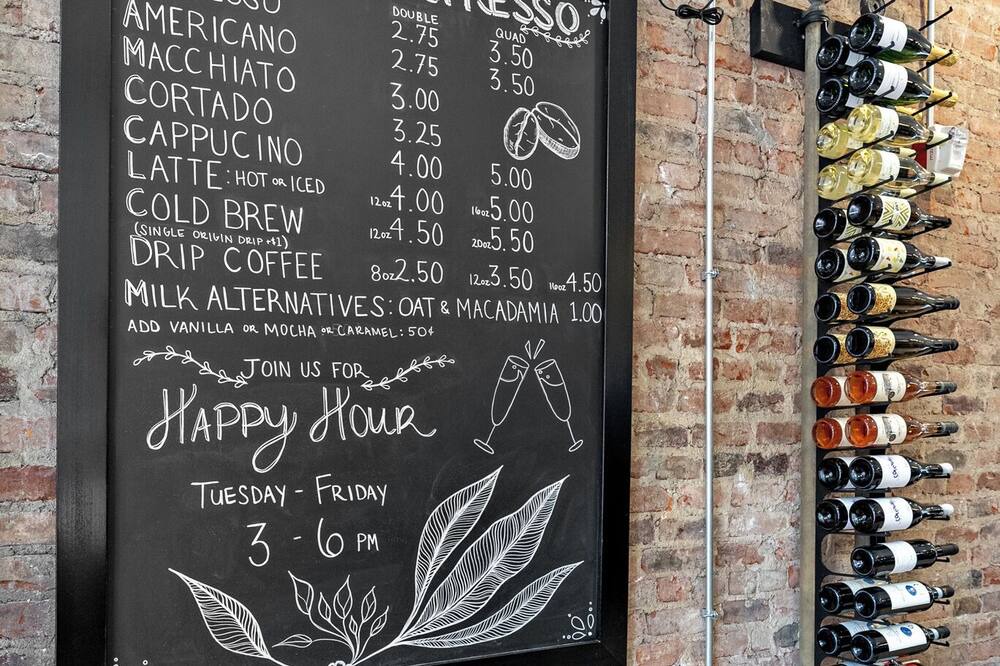 SPRESSO
DOUBLE QUAD
ESSO 2.75 3.50
AMERICANO 2.75 3.50
MACCHIATO 3.00
CORTADO 3.25
CAPPUCINO 4.00 5.00
LATTE: HOT OR ICED 12oz 4.00 16oz 5.00
COLD BREW 12oz 4.50 20oz 5.50
(SINGLE ORIGIN DRIP +$1)
DRIP COFFEE 8oz 2.50 12oz 3.50 16oz 4.50
MILK ALTERNATIVES: OAT & MACADAMIA 1.00
ADD VANILLA OR MOCHA OR CARAMEL: 50¢
JOIN US FOR
HAPPY HOUR
TUESDAY - FRIDAY
3 - 6 PM